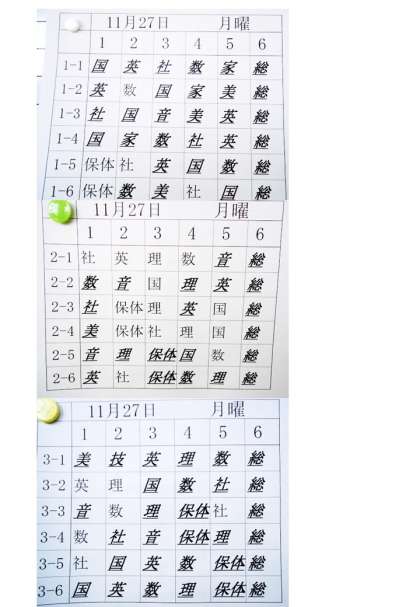 11月27日 月曜
1 2 3 4 5 6
1-1 国 英 社 数 家 総
1-2 英 数 国 家 美 総
1-3 社 国 音 美 英 総
1-4 国 家 数 社 英 総
1-5 保体 社 英 国 数 総
1-6 保体 数 美 社 国 総
11月27日 月曜
1 2 3 4 5 6
2-1 社 英 理 数 音 総
2-2 数 音 国 理 英 総
2-3 社 保体 理 英 国 総
2-4 美 保体 社 理 国 総
2-5 音 理 保体 国 数 総
2-6 英 社 保体 数 理 総
11月27日 月曜
1 2 3 4 5 6
3-1 美 技 英 理 数 総
3-2 英 理 国 数 社 総
3-3 音 数 理 保体 社 総
3-4 数 社 音 保体 理 総
3-5 社 国 英 数 保体 総
3-6 国 英 数 理 保体 総